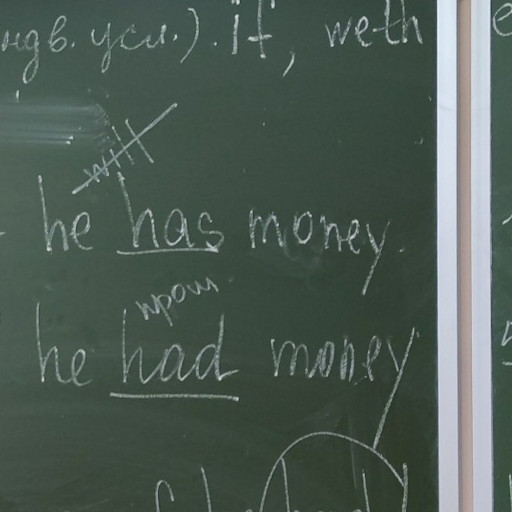 индв. усл.). if, weth
will
he has money.
прош.
he had money